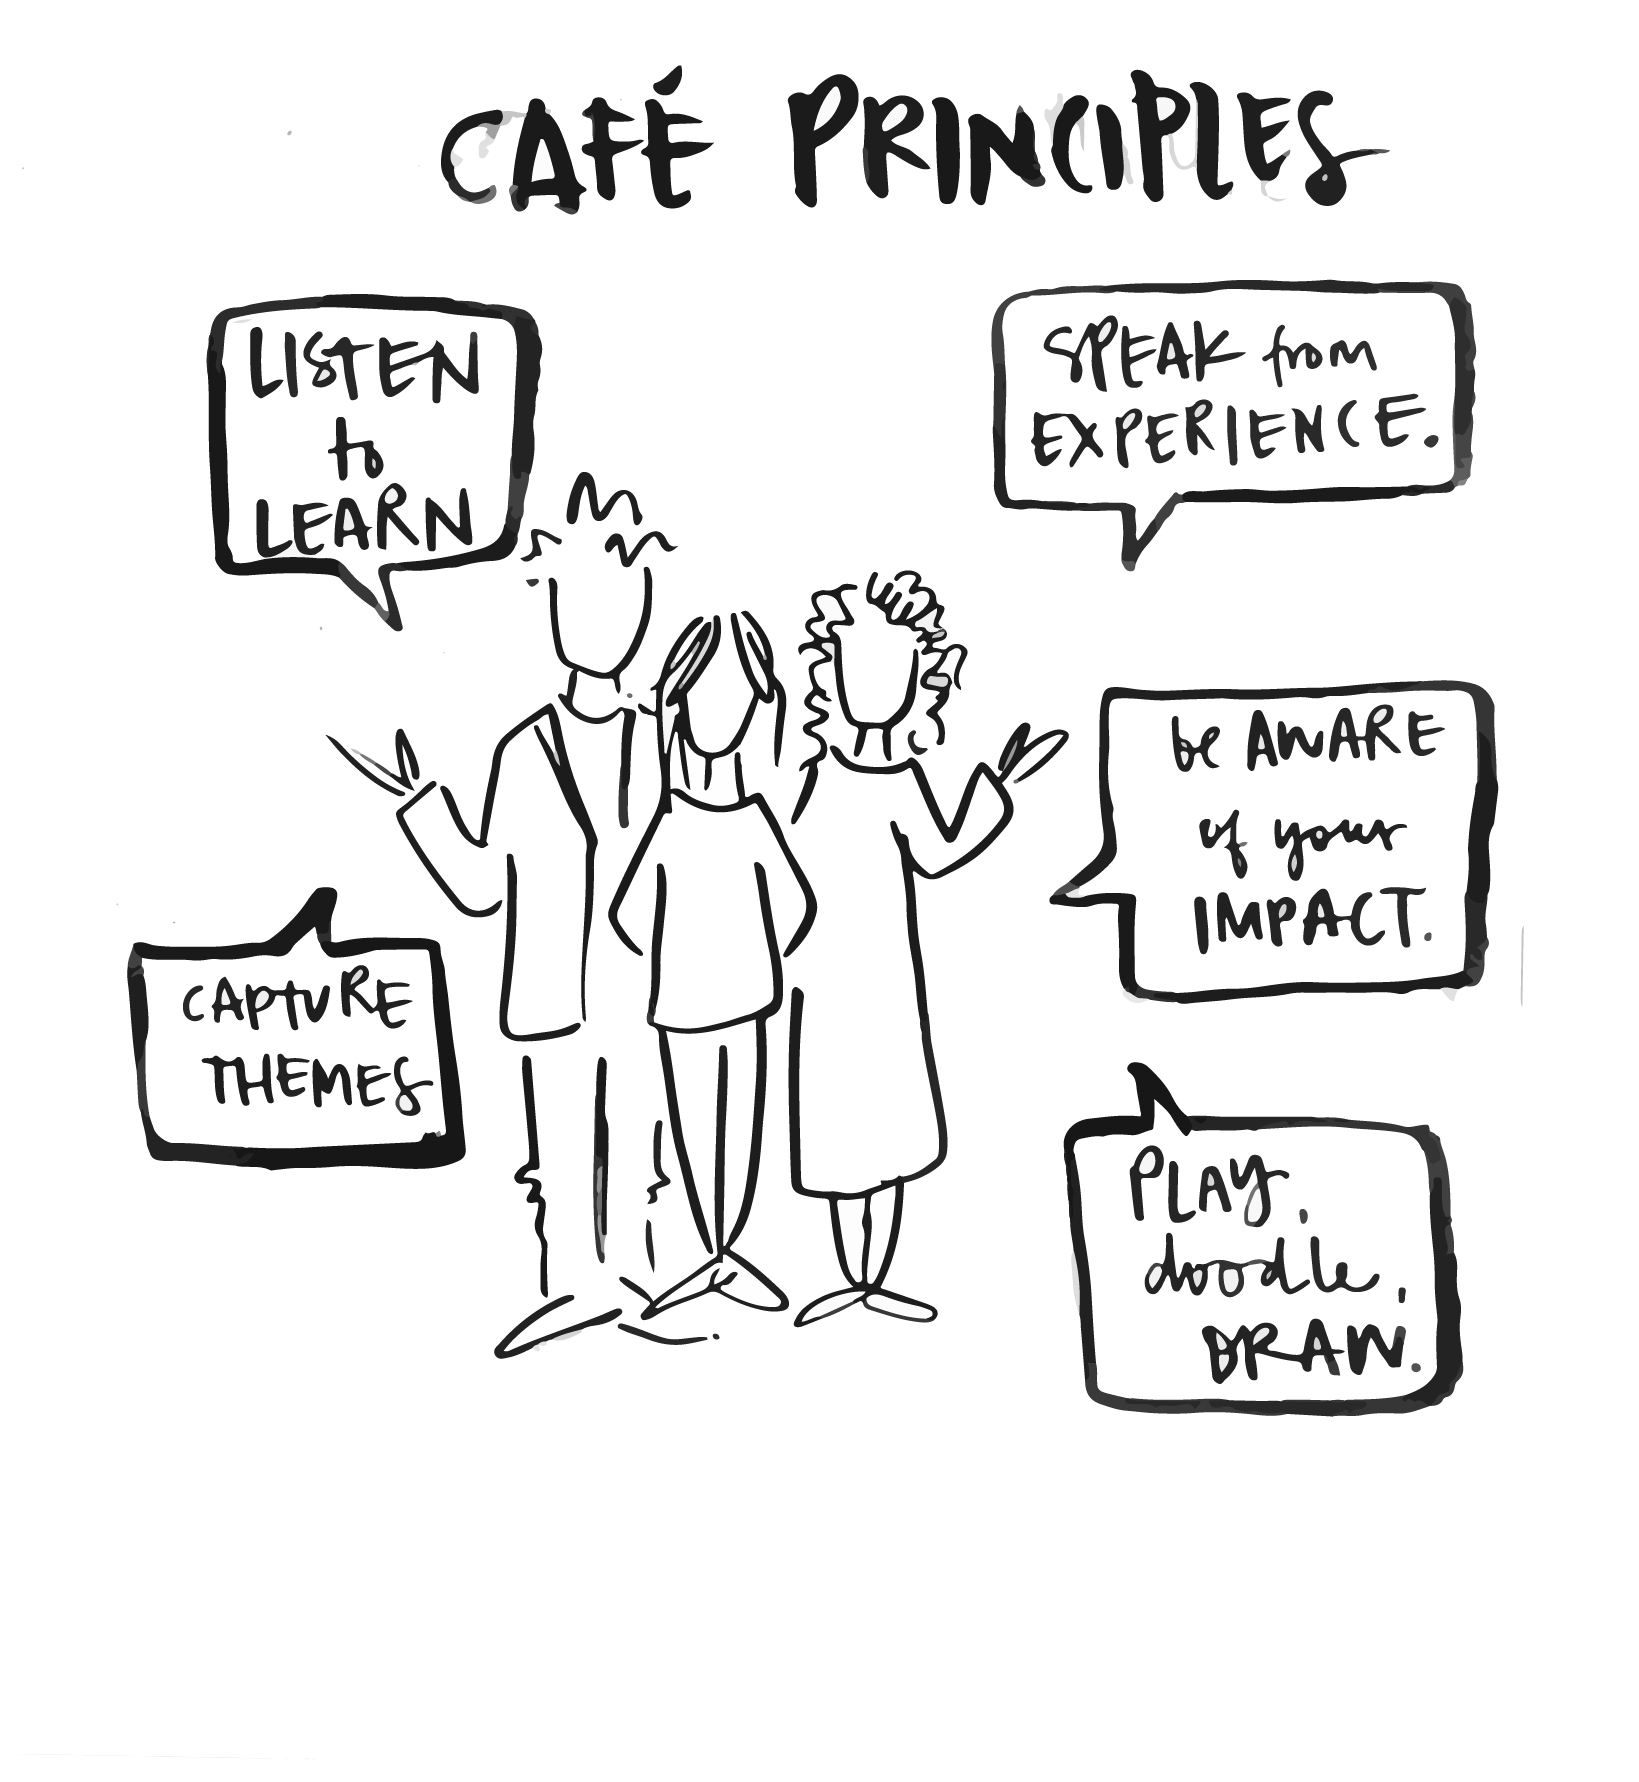 CAFÉ PRINCIPLES
LISTEN
to
LEARN
SPEAK from
EXPERIENCE.
be AWARE
of your
IMPACT.
CAPTURE
THEMES
PLAY,
doodle,
DRAW.